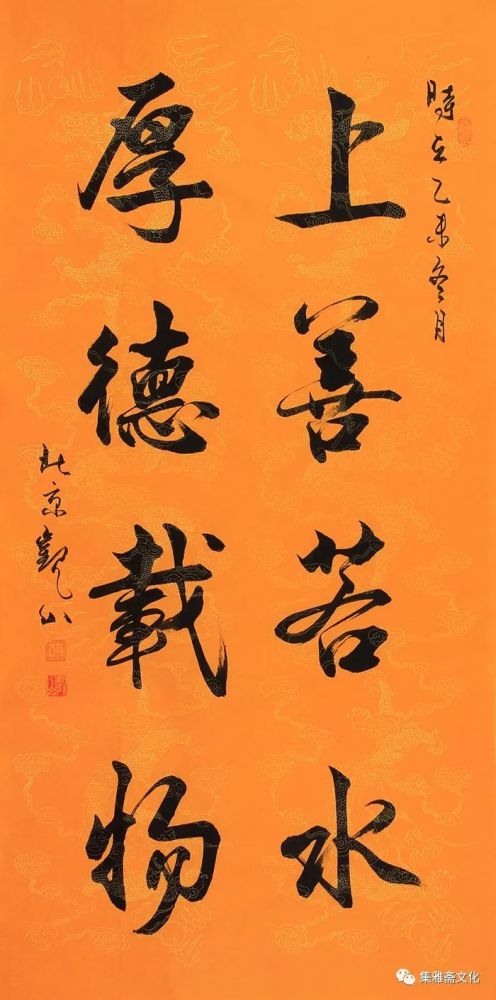 時在乙未冬月
上善若水
厚德載物
北京觀山
集雅斋文化